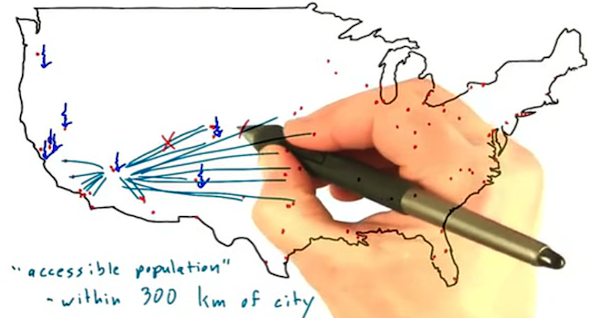 "accessible population"
- within 300 km of city